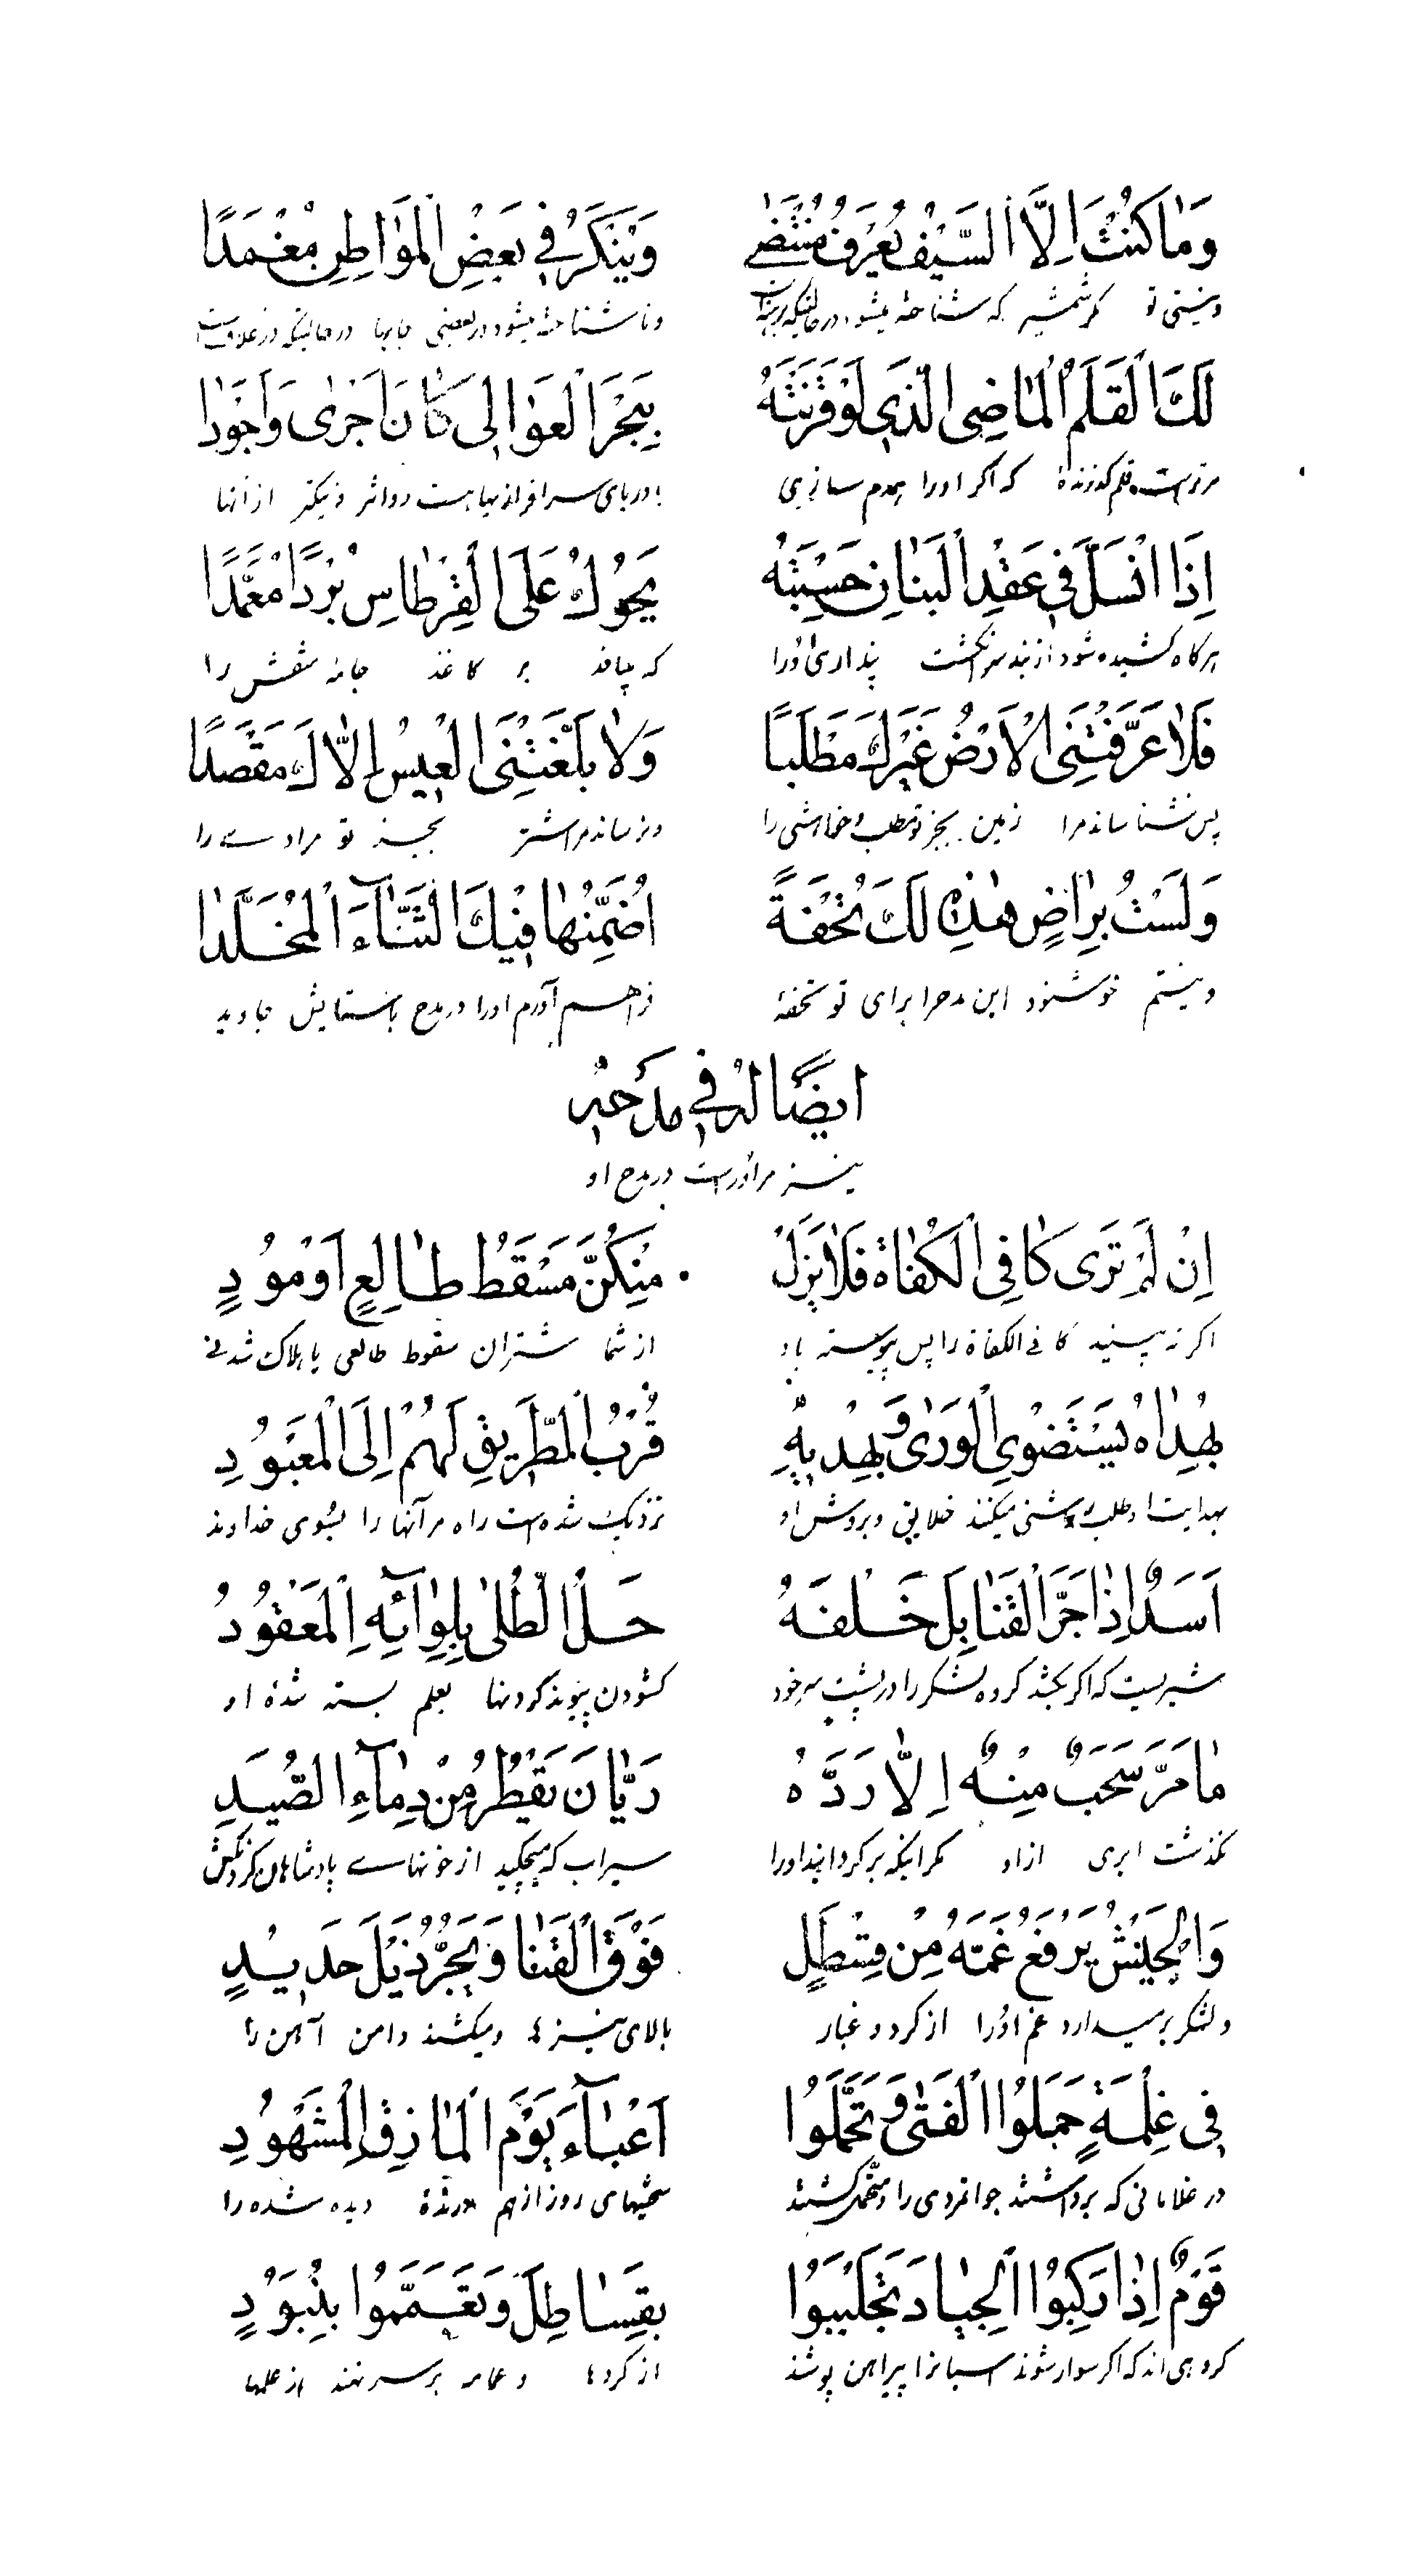 وَمٰا كُنْتَ اِلَّا السَّيْفُ يُعْرَفُ مُنْتَضٰى وَيُنْكَرُ فِى بَعْضِ الْمَوٰاطِنِ مُغْمَدًا
ونیستی تو مکر شمشیر که شناخته میشود در حالتیکه برهنه است ونا شناخته میشود در بعضی جایها در حالتیکه در غلافست
لَكَ الْقَلَمُ الْمٰاضِى الَّذِى لَوْ قَرَنْتَهُ بِبَحْرِ الْعَوٰالِى كٰانَ اَجْرٰى وَاَجْوَدٰا
مر تو است قلم گذرنده که اکر اورا همدم سازی با دریای سرافراز نیها هست روانتر ونیکتر از آنها
اِذَا انْسَلَّ فِى عَقْدِ الْبَنٰانِ حَسِبْتَهُ يَحُوْكُ عَلَى الْقِرْطٰاسِ بُرْدًا مُعَمَّدًا
هرکاه کشیده شود از بند سر انکشت پنداری اورا که میبافد بر کاغذ جامه منقش را
فَلٰا عَرَّفَتْنِى الْاَرْضُ غَيْرَكَ مَطْلَبًا وَلٰا بَلَّغَتْنِى الْعِيْسُ اِلّٰاكَ مَقْصَدًا
پس نشناساند مرا زمین بجز تو مطلب و خواهشی را ونرساند مرا شتر بجز تو مرادے را
وَلَسْتُ بِرٰاضٍ هٰذِهِ لَكَ تُحْفَةً اُضَمِّنُهٰا فِيْكَ الثَّنٰآءَ الْمُخَلَّدٰا
ونیستم خوشنود این مدحرا برای تو تحفهٔ فراهم آورم اورا در مدح تو ستایش جاوید
ايضًا له فى مدحه
نیز مر اوراست در مدح او
اِنْ لَمْ تَرَى كٰافِى الْكُفٰاةِ فَلٰا يَزَلْ مِنْكُنَّ مَسْقَطُ طٰالِعٍ اَوْ مُوْدٍ
اکر نه بینید کافے الکفاة را پس پیوسته باد از شما شتران سقوط طالعی یا هلاک شدنے
بِهُدٰاهُ يَسْتَضْوِى الْوَرٰى وَبِهَدْيِهِ قُرْبُ الطَّرِيْقِ لَهُمْ اِلَى الْمَعْبُوْدِ
بهدایت او طلب روشنی میکنند خلایق وبروش او نزدیک شده است راه مر آنها را بسوی خداوند
اَسَدٌ اِذٰا جَرَّ الْقَنٰابِلَ خَلْفَهُ حَلُّ الطُّلٰى بِلِوٰائِهِ الْمَعْقُوْدُ
شیریست که اکر بکشد کروه لشکر را در پشت سر خود کشودن پیوند کردنها بعلم بسته شدۀ او
مٰا مَرَّ سَحَبٌ مِنْهُ اِلّٰا رَدَّهُ رَيّٰانَ يَقْطُرُ مِنْ دِمٰآءِ الصِّيْدِ
نمکذشت ابری از او مکر اینکه برکردانید اورا سیراب که میچکید از خونهاے پادشاهان کردنکش
وَالْجَيْشُ يَرْفَعُ غَمَّهُ مِنْ قَسْطَلٍ فَوْقَ الْقَنٰا وَيَجُرُّ ذَيْلَ حَدِيْدٍ
ولشکر برمیدارد غم اورا از کرد و غبار بالای نیزها ومیکشند دامن آهن را
فِى غِلْمَةٍ حَمَلُوا الْفَتٰى وَتَحَمَّلُوا اَعْبٰآءَ يَوْمِ الْمٰازِقِ الْمَشْهُوْدِ
در غلامانی که برداشتند جوانمردی را ومتحمل کشتند سختیهای روز از هم درندۀ دیده شده را
قَوْمٌ اِذٰا رَكِبُوا الْجِيٰادَ تَجَلْبَبُوا بِقَسٰاطِلَ وَتَعَمَّمُوا بِبُنُوْدٍ
کروهی اند که اکر سوار شوند اسبانرا پیراهن پوشند از کردها وعمامه بر سر نهند از علمها